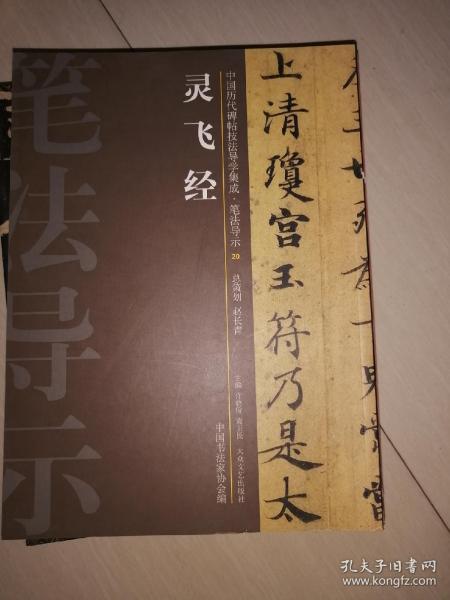 笔法导示
灵飞经
中国历代碑帖技法导学集成·笔法导示
20
总策划 赵长青
主编
大众文艺出版社
中国书法家协会编
上清琼宫玉符乃是太
孔夫子旧书网
www.kongfz.com